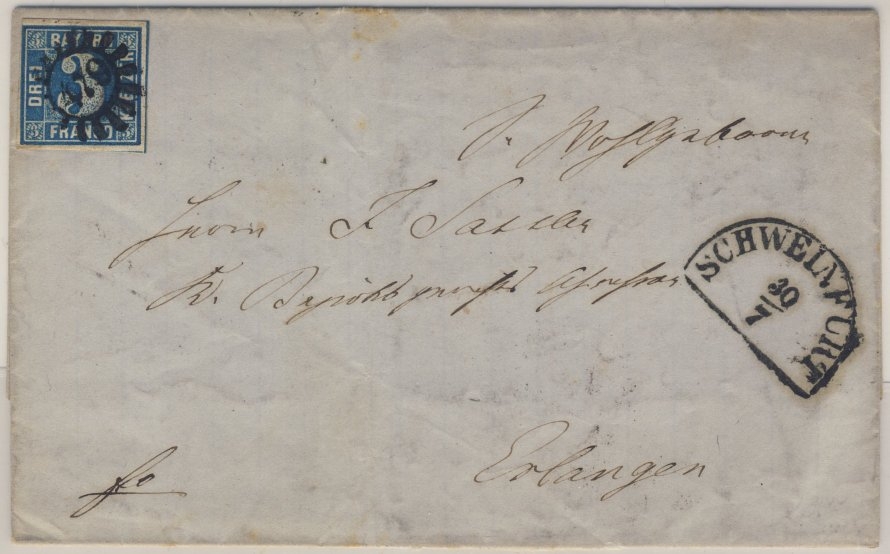 BAYERN
DREI 3 KREUZER
FRANCO
478
Sr. Wohlgeboren
Herrn F. Sattler
K. Bezirksgerichts Assessor
SCHWEINFURT
30
7
Erlangen
fo